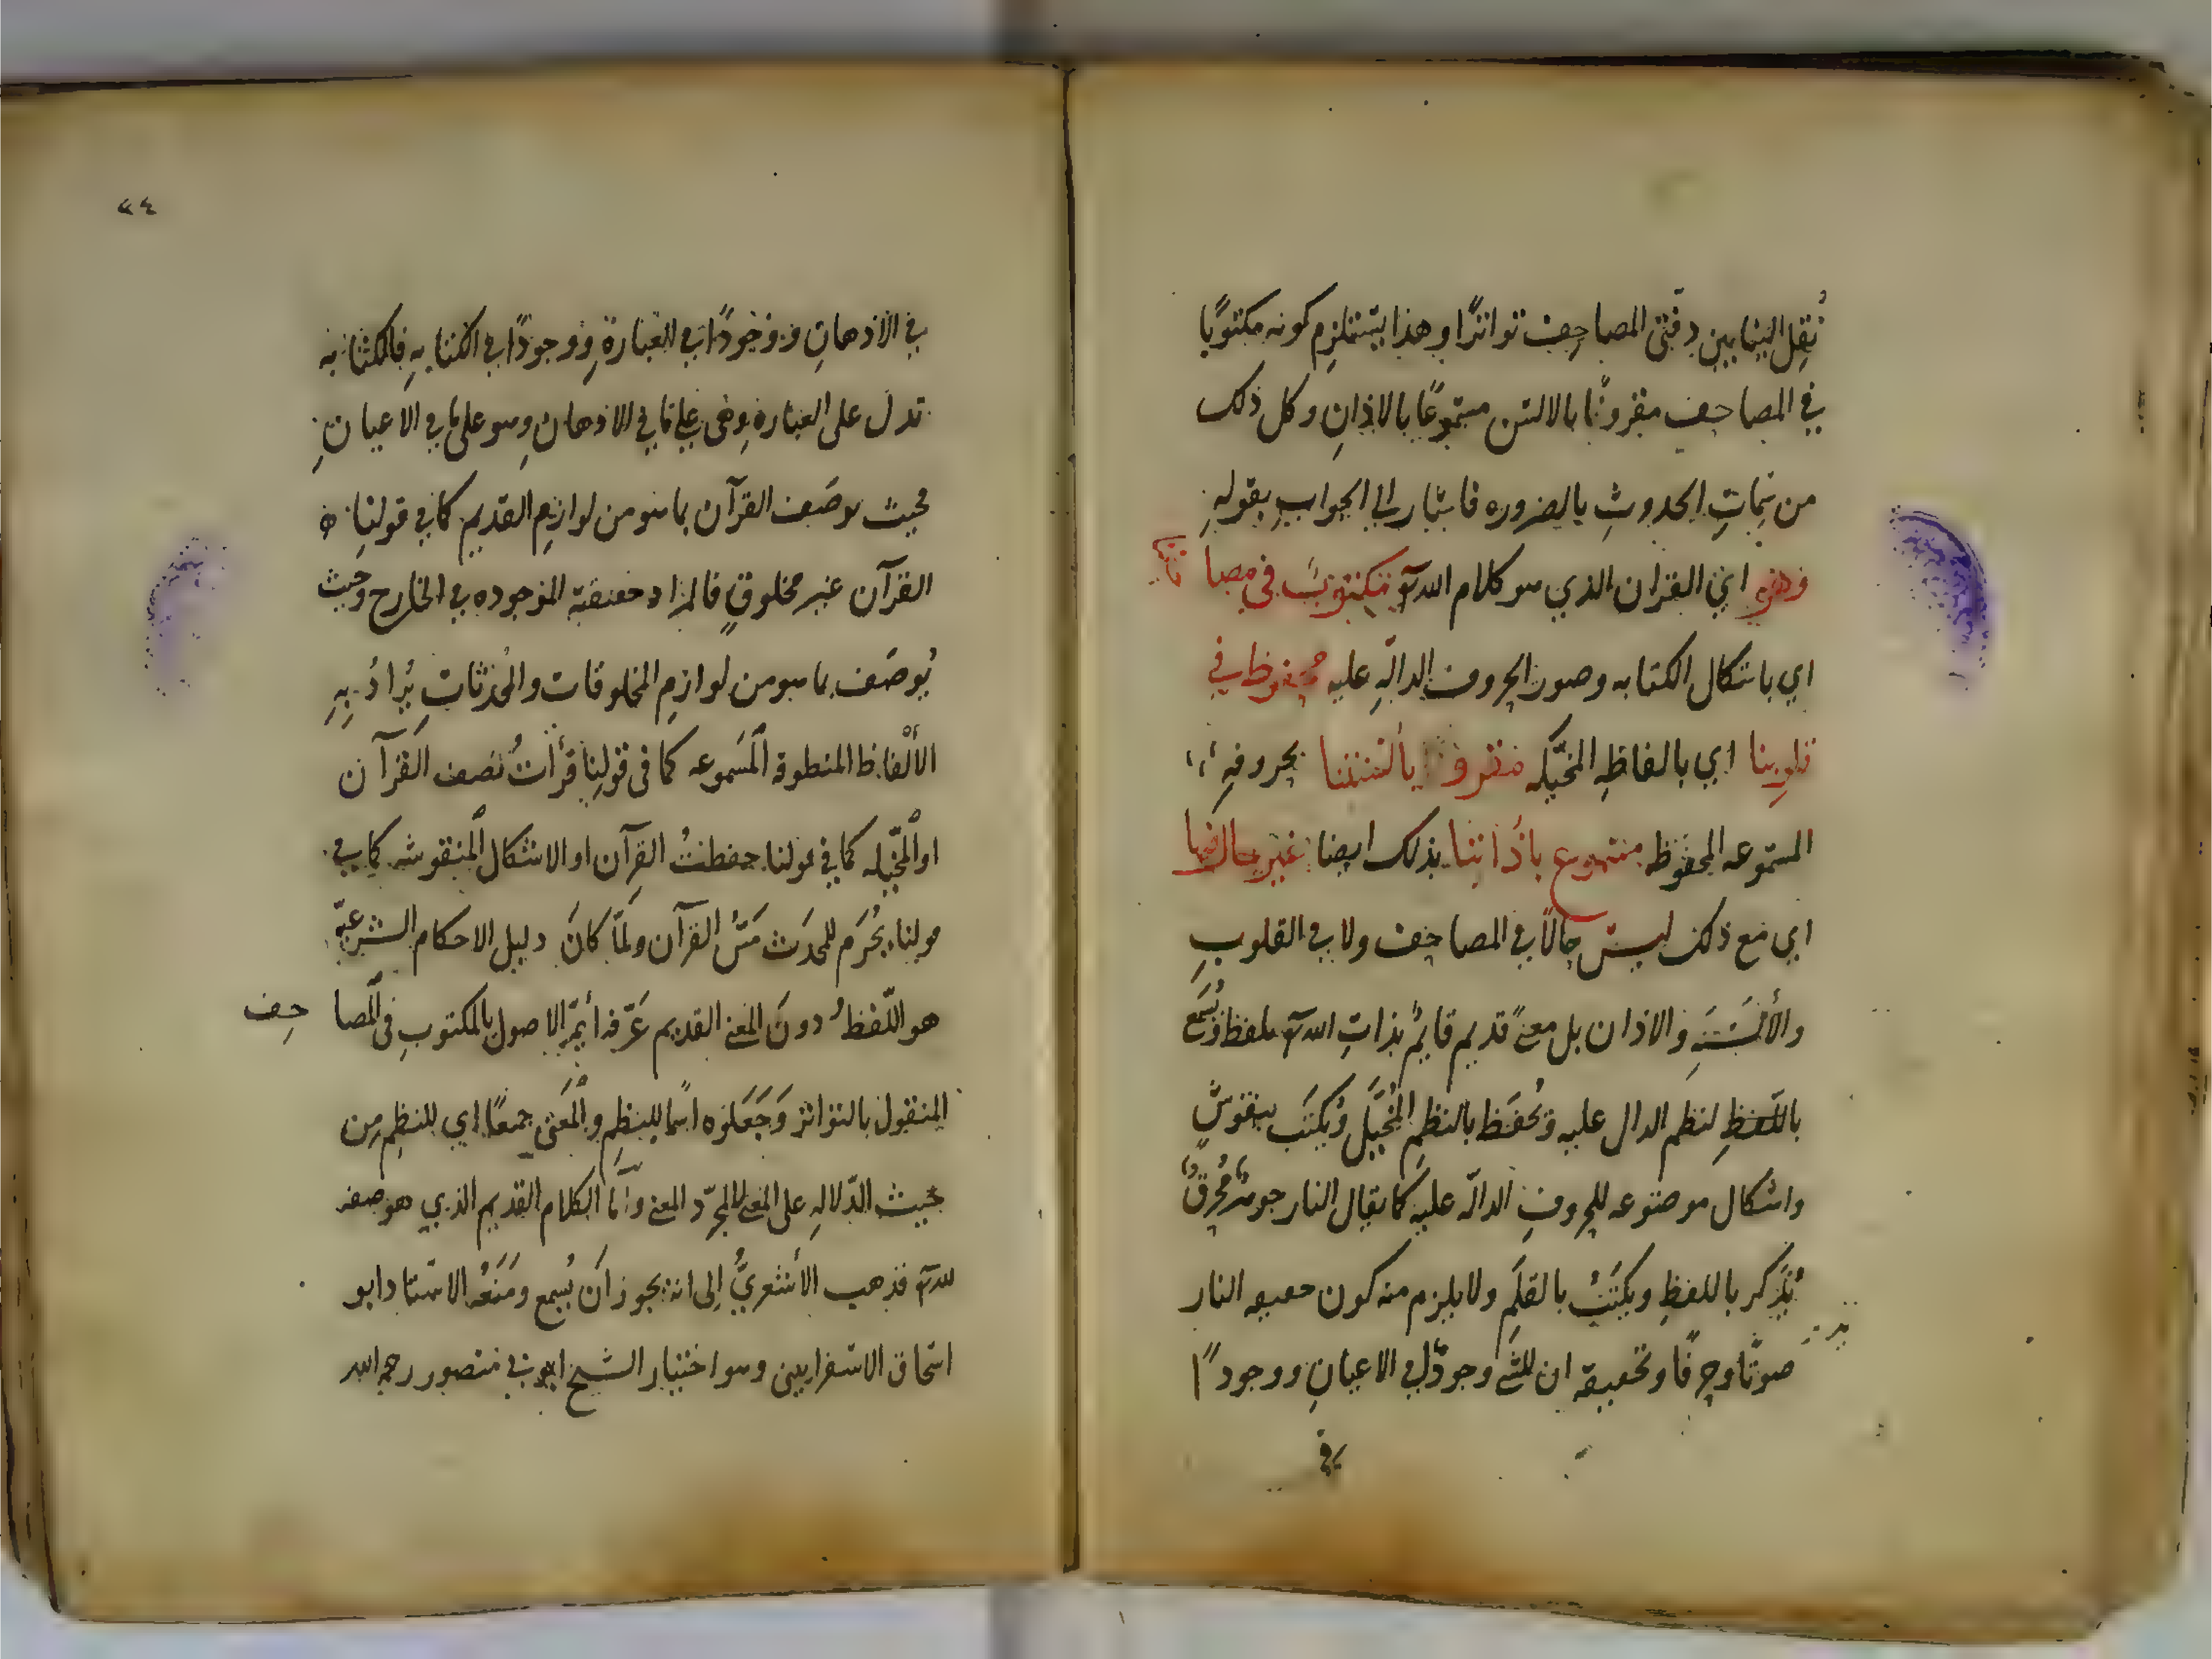 نُقِل الينا بين دفتى المصاحِف تواترًا وهذا يستلزم كونه مكتوبًا
في المصاحف مقروًّا بالالسن مسموعًا بالاذانِ وكل ذلك
من سِمَاتِ الحدوثِ بالضروره فاشار الى الجوابِ بقولهِ
وهو اي القران الذي هو كلام الله تع مكتوب في مصا حفنا
اي باشكال الكتابه وصور الحروف الدالّهِ عليه محفوظ في
قلوبِنا اي بالفاظهِ المخيّله مقرو بألسنتنا بحروفهِ
المسموعه الملفوظه مسموع بآذاننا بذلك ايضا غير حال فيها
اي مع ذلك ليس حالًا في المصاحف ولا في القلوبِ
والألسَنهِ والاذان بل معنًى قديم قايمٌ بذاتِ الله تع يلفظ ويُسمَع
باللّفظِ لنظم الدال عليه ويُحفَظ بالنظمِ المُخيَّل ويُكتَب بنقوشٍ
واشكال موضوعه للحروفِ الدالّه عليه كما يقال النار جوهرٌ مُحرقٌ
يُذكر باللفظِ ويكتَبُ بالقلَمِ ولا يلزم منه كون حقيقه النار
صوتًا وحرفًا وتحقيقه ان للشئ وجودًا في الاعيانِ ووجودًا
في
٣٤
في الاذهانِ ووجودًا في العبارةِ ووجودًا في الكتابهِ فالكتابه
تدل على العبارة وهى على ما في الاذهان وهو على ما في الاعيان
فحيث يوصَف القرآن بما هو من لوازمِ القديم كما في قولنا
القرآن غير مخلوقٍ فالمراد حقيقته الموجوده في الخارج وحيث
يُوصَف بما هو من لوازمِ المخلوقات والمُحدثاتِ يُرادُ بهِ
الألْفاظ المنطوقه المسَموعه كما في قولِنا قرأتُ نصف القرآن
او المُخيّله كما في قولنا حفظتُ القرآن او الاشكال المنقوشه كما في
قولنا يحُرَم للمحدَث مَسُّ القرآن ولمّا كانَ دليل الاحكام الشرعيّه
هو اللّفظُ دونَ المعنى القديم عَرّفه أيمّة الاصول بالمكتوبِ في المصا حِف
المنقول بالتواتر وَجَعَلوُه اسمًا للنظِم والمَعنى جمعًا اي للنظمِ مِن
حيث الدّلالهِ على المعنى لا لمجرّد المعنى وامّا الكلام القديم الذي هو صفه
لله تع فذهب الأشعريُّ إلى انه يجوز انَ يُسمع ومَنَعَهُ الاستاد ابو
اسحاق الاسفراييني وهو اختيار الشيخ ابي منصور رحمه الله